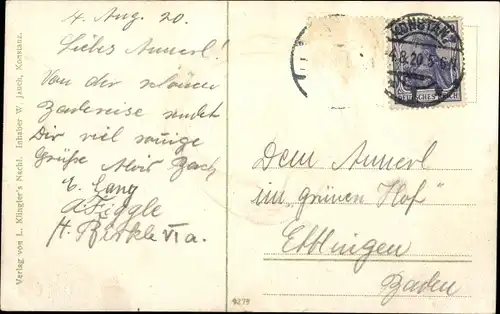 4. Aug. 20.
Liebes Annerl!
Von der schönen
Badereise sendet
Dir viel sonnige
Grüße Alois Bach
E. Lang
A Figgle
H. Birkle VIa.
Verlag von L. Klingler's Nachf. Inhaber W. Jauch, Konstanz.
9278
KONSTANZ
4.8.20 5-6 N
DEUTSCHES REICH
Dem Annerl
im „grünen Hof"
Ettlingen
Baden